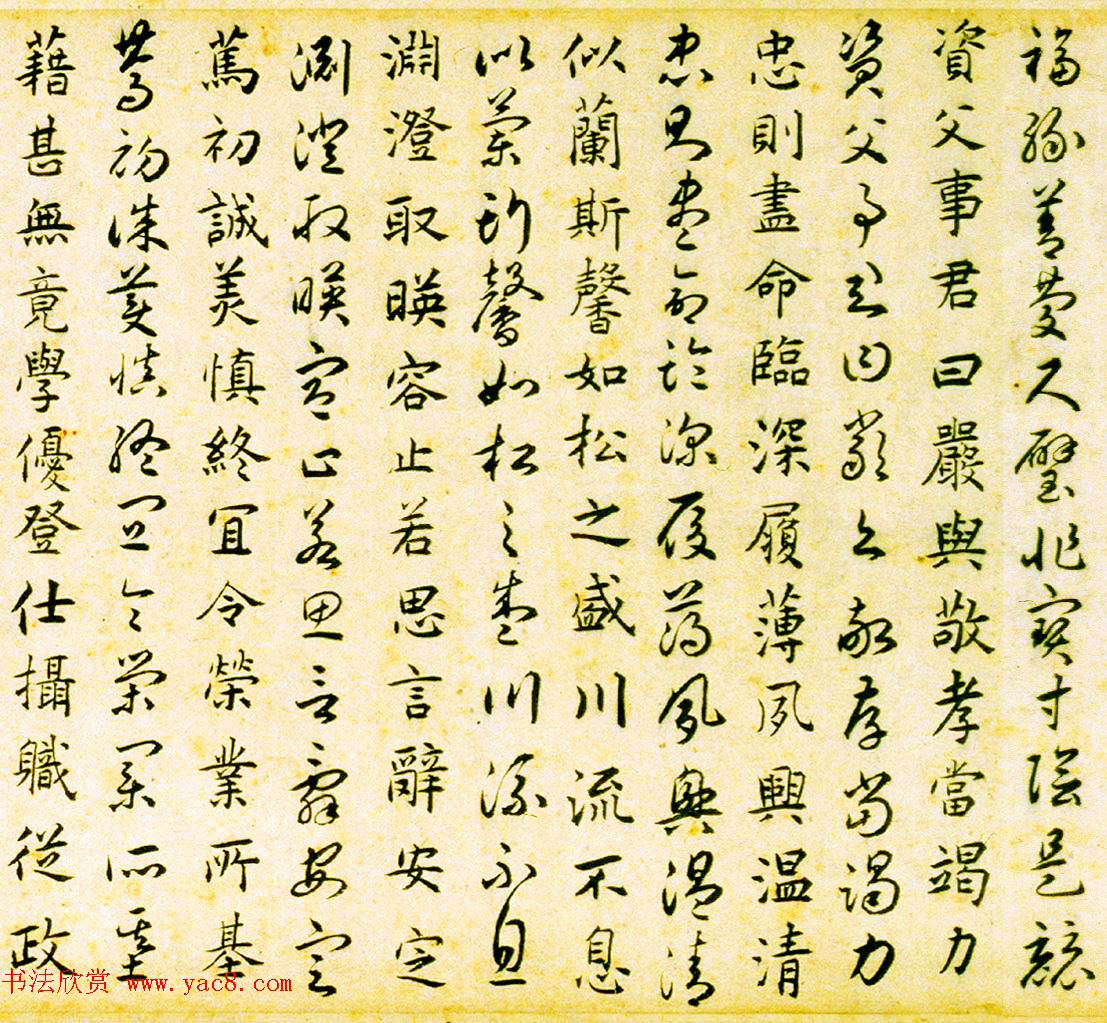 福緣善慶尺璧非寶寸陰是競
資父事君曰嚴與敬孝當竭力
資父事君曰嚴與敬孝當竭力
忠則盡命臨深履薄夙興温清
忠則盡命臨深履薄夙興温清
似蘭斯馨如松之盛川流不息
似蘭斯馨如松之盛川流不息
淵澄取暎容止若思言辭安定
淵澄取暎容止若思言辭安定
篤初誠美慎終宜令榮業所基
篤初誠美慎終宜令榮業所基
藉甚無竟學優登仕攝職從政
书法欣赏 www.yac8.com